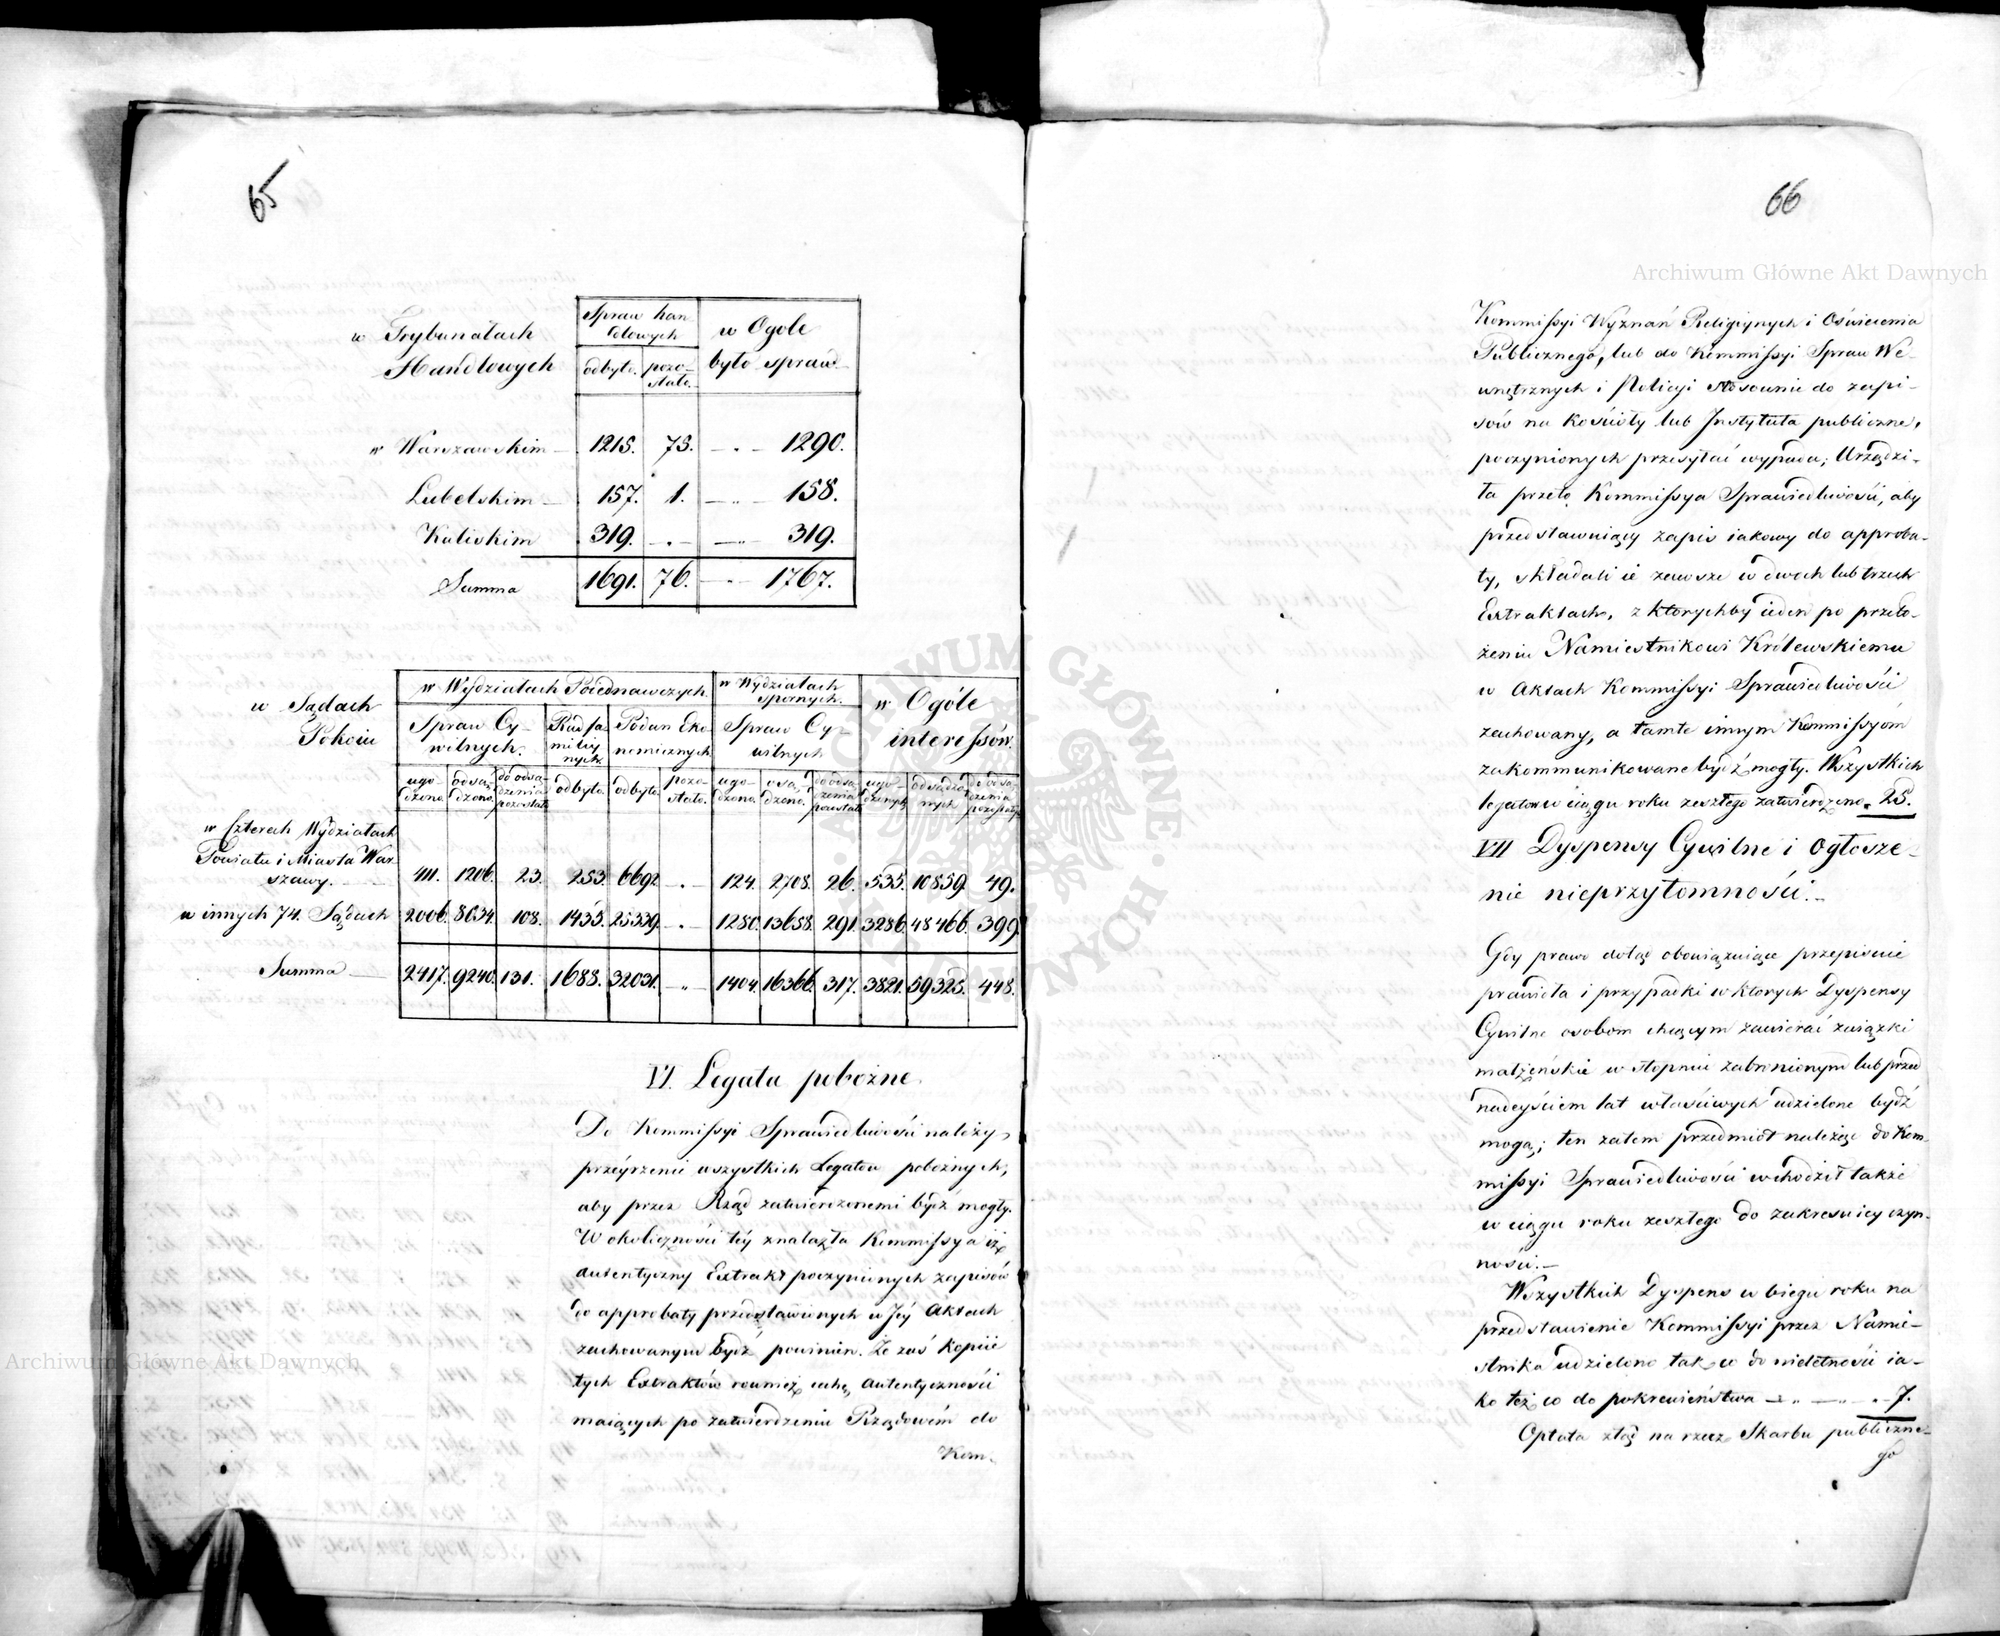 65
w Trybunałach
Handlowych
Spraw han
dlowych
w Ogole
było spraw
odbyto. pozo-
stało.
w Warszawskim 1215. 75. 1290.
Lubelskim 157. 1. 158.
Kaliskim 319. 319.
Summa 1691. 76. 1767.
w Sądach
Pokoiu
w Wydziałach Poiednawczych
w Wydziałach
spornych.
w Ogóle
interessów.
Spraw Cy-
wilnych.
Rad fa
miliy
nych
Podan Eko
nomicznych
Spraw Cy-
wilnych
ugo-
dzono.
odsą-
dzono.
do odsą-
dzenia
pozostało
odbyto.
odbyto.
pozo-
stało.
ugo-
dzono.
osą-
dzono.
do odsą-
dzenia
pozostało
ugo-
dzonych
odsądzo-
nych
do odsą-
dzenia
pozostały
w Czterech Wydziałach
Powiatu i Miasta War
szawy. 411. 1206. 23. 253. 6692 124. 2708. 26. 535. 10859. 49.
w innych 74. Sądach 2006. 8034. 108. 1435. 25339. 1280. 13658. 291. 3286. 48466. 399.
Summa 2417. 9240. 131. 1688. 32031. 1404. 16366. 317. 3821. 59325. 448.
VI. Legata pobożne.
Do Kommissyi Sprawiedliwości należy
przeyrzenie wszystkich Legatow pobożnych,
aby przez Rząd zatwierdzonemi bydź mogły.
W okoliczności tey znalazła Kommissya iż
autentyczny Extrakt poczynionych zapisów
do approbaty przedstawionych w Jey Aktach
zachowanym bydź powinien. Że zaś kopiie
tych Extraktów rownież cechę Autentyczności
maiących po zatwierdzeniu Rządowém do
Kom-
66
Kommissyi Wyznań Religiynych i Oświecenia
Publicznego, lub do Kommissyi Spraw We-
wnętrznych i Policyi stosownie do zapi-
sów na kościoły lub Instytuta publiczne,
poczynionych przesyłać wypada; Urządzi-
ła przeto Kommissya Sprawiedliwości, aby
przedstawuiący zapis iakowy do approba-
ty, składali ie zawsze w dwoch lub trzech
Extraktach, z ktorychby ieden po przeło-
żeniu Namiestnikowi Królewskiemu
w Aktach Kommissyi Sprawiedliwości
zachowany, a tamte innym Kommissyóm
zakommunikowane bydź mogły. Wszystkich
legatow w ciągu roku zeszłego zatwierdzono. 25.
VII Dyspensy Cywilne i ogłosze-
nie nieprzytomności.
Gdy prawo dotąd obowiązuiące przepisuie
prawidła i przypadki w ktorych Dyspensy
Cywilne osobom chcącym zawierać związki
małżeńskie w stopniu zabronionym lub przed
nadeyściem lat właściwych udzielone bydź
mogą; ten zatem przedmiot należąc do Kom-
missyi Sprawiedliwości wchodził także
w ciągu roku zeszłego do zakresu iey czyn-
ności.
Wszystkich Dyspens w biegu roku na
przedstawienie Kommissyi przez Namie-
stnika udzielono tak co do nieletności ia-
ko też co do pokrewieństwa 7.
Opłata ztąd na rzecz Skarbu publiczne-
go
Archiwum Główne Akt Dawnych
Archiwum Główne Akt Dawnych
ARCHIWUM GŁÓWNE AKT DAWNYCH